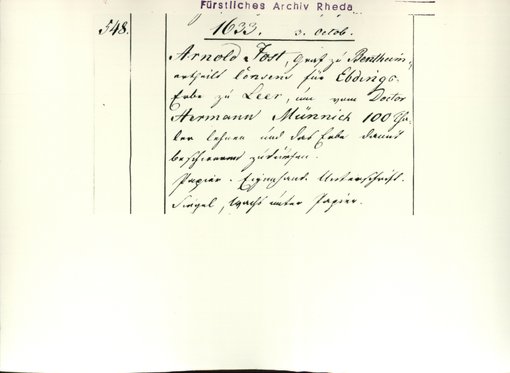 Fürstliches Archiv Rheda
548. 1633. 3. Octob.
Arnold Jost, Graf zu Bentheim,
ertheilt Consens für Ebdings
Erbe zu Leer, um vom Doctor
Hermann Münnich 100 Tha-
ler lehnen und das Erbe damit
beschweren zu dürfen.
Papier. Eigenhänd. Unterschrift.
Siegel, Wachs unter Papier.